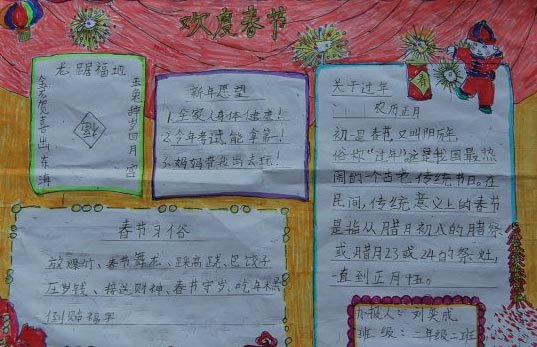 欢度春节
龙踞福地
金龙贺喜出东海
玉兔辞岁月宫
新年愿望
1.全家人身体健康!
2.今年考试能拿第一!
3.妈妈带我出去玩!
春
关于过年
农历正月
初一是春节又叫阴历年,
俗称“过年”这是我国最热
闹的一个古老传统节日。在
民间,传统意义上的春节
是指从腊月初八的腊祭
或腊月23或24的祭灶,
一直到正月十五。
春节习俗
放爆竹、春节舞龙、踩高跷、包饺子
压岁钱、接送财神、春节守岁、吃年糕
倒贴福字
办报人:刘奕成
班级:二年级二班